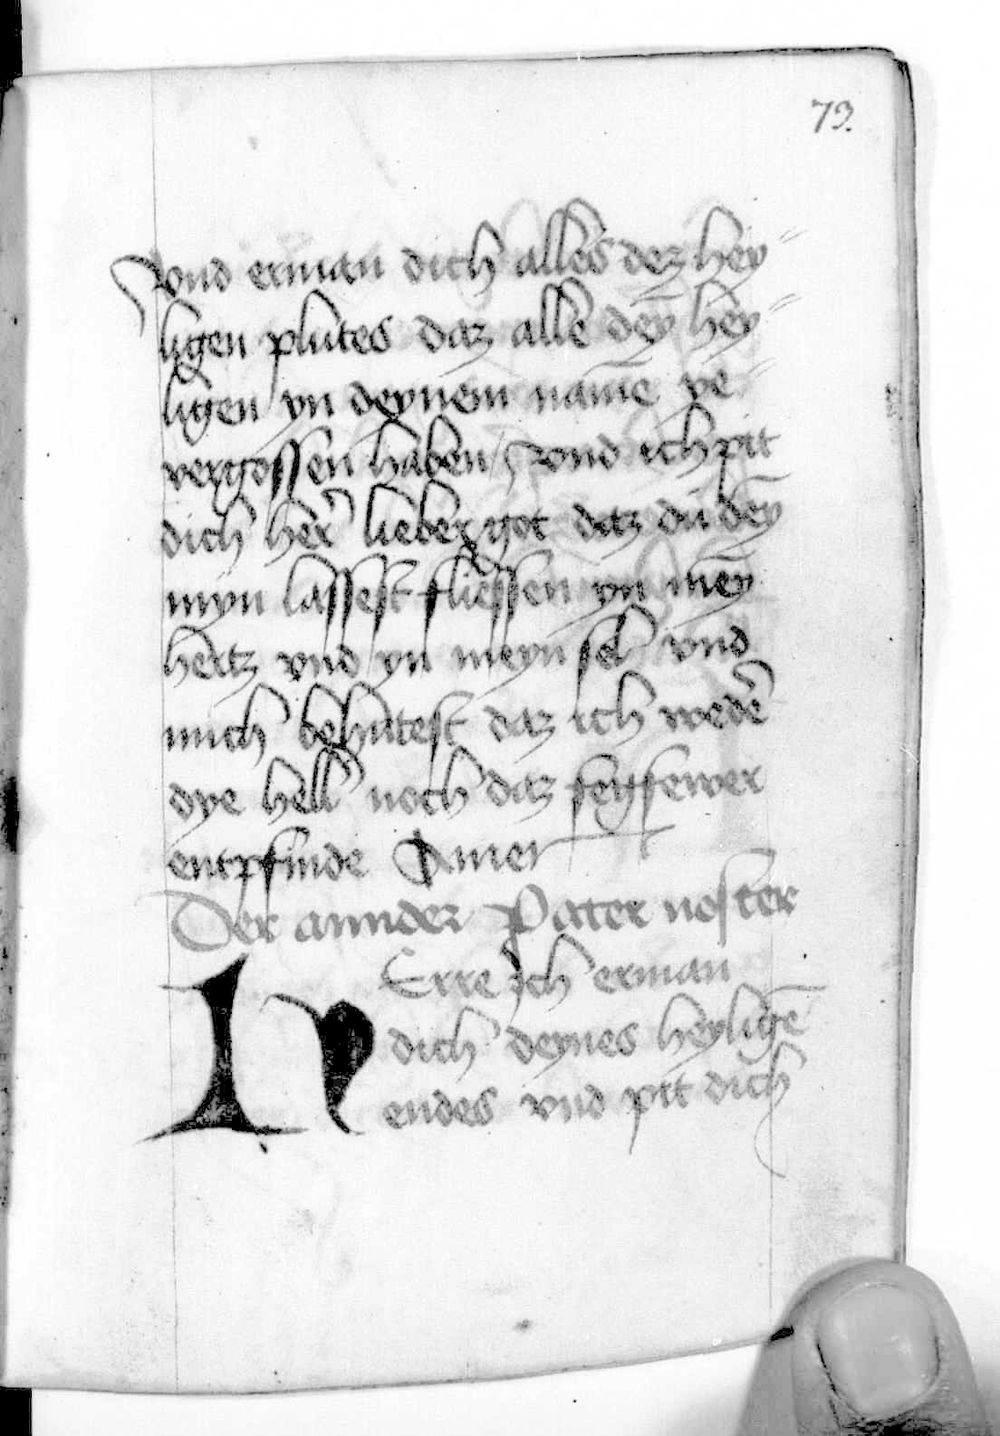 73.
vnd erman dich alles dez hey=
ligen plutes daz alle dey̅ hey=
ligen yn deynem name̅ ye
vergossen haben / vnd ich pit
dich her̉ lieber got daz du dey̅
myn lassest fliessen yn mey̅
hertz vnd yn meyn sel vnd
mich behutest daz ich wedẻ
dye hell noch daz fegfewer
entpfinde Amen
Der annder Pater noster
HErre Ich erman
dich deynes heylige̅
endes vnd pit dich